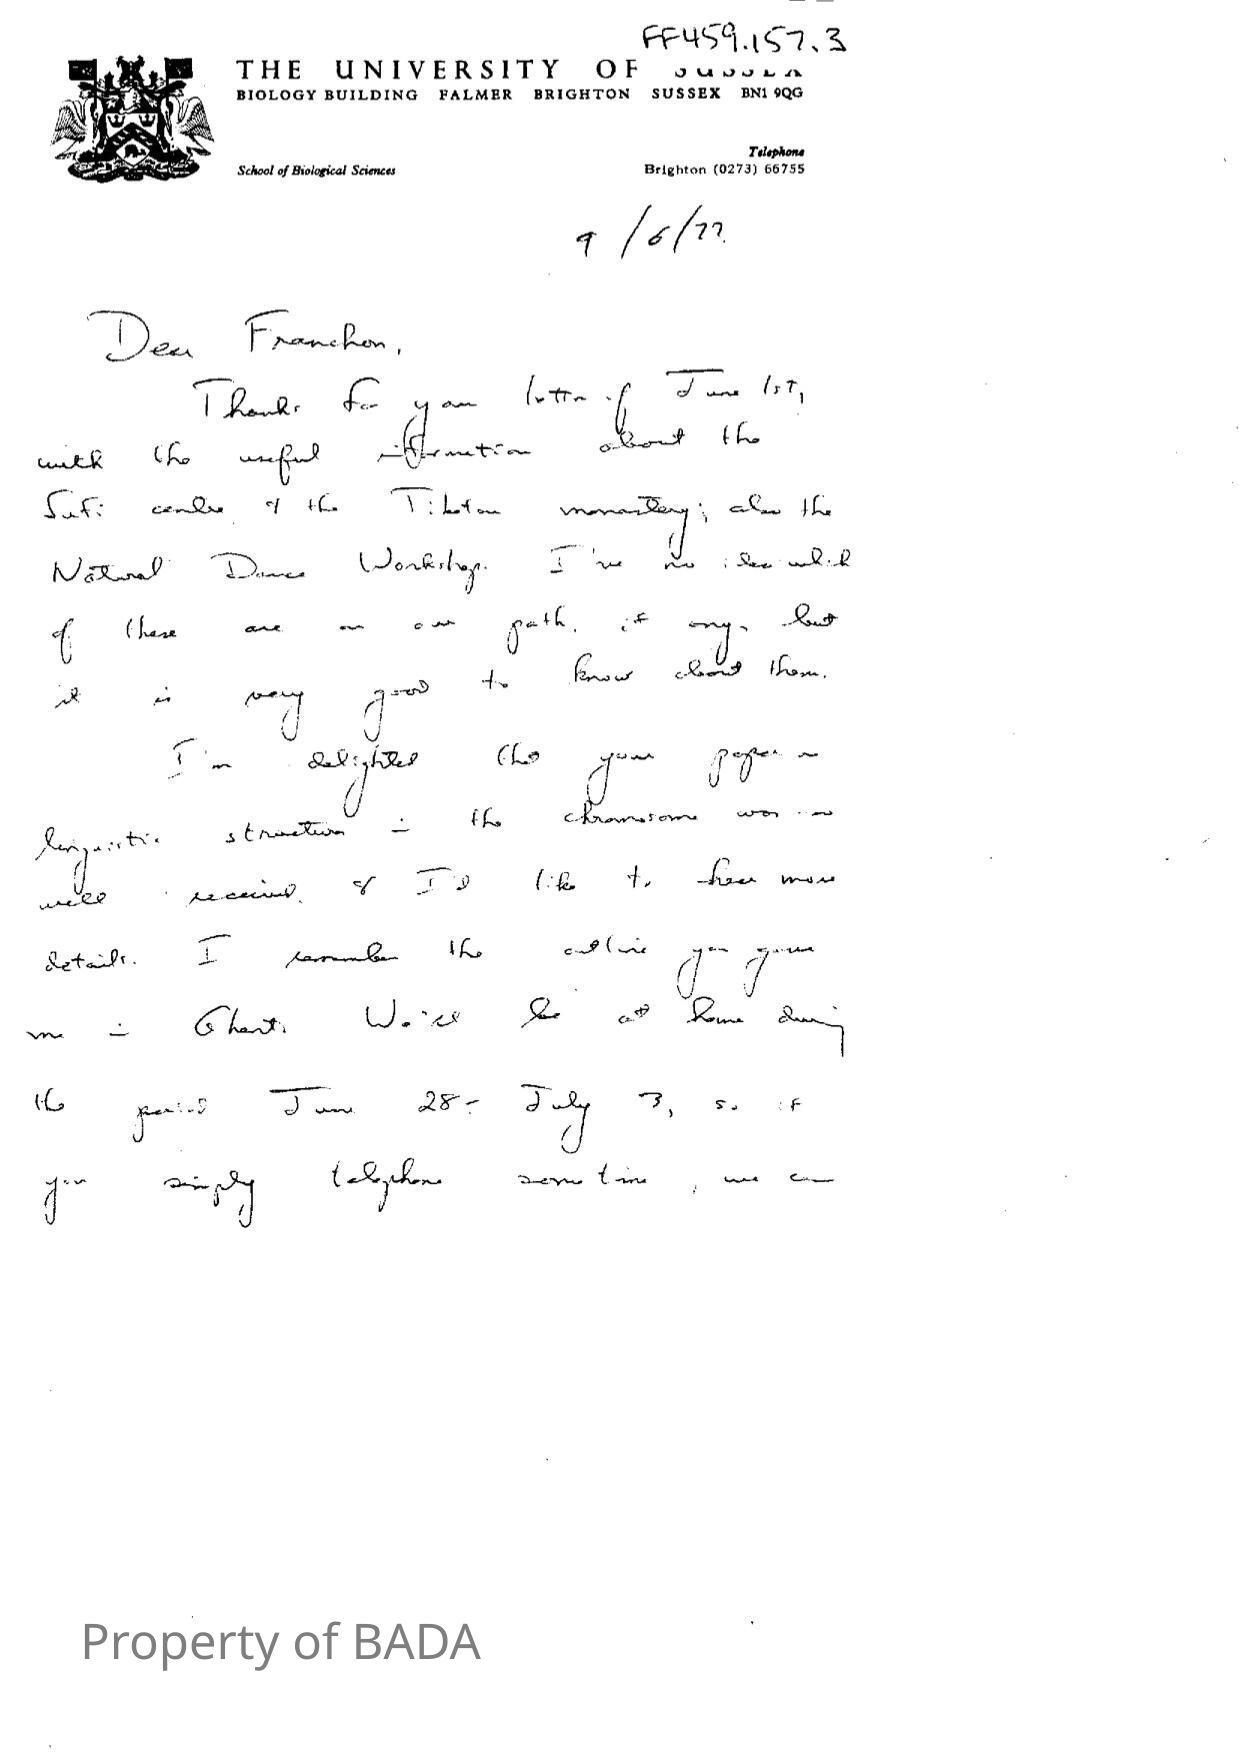 FF459.157.3
THE UNIVERSITY OF SUSSEX
BIOLOGY BUILDING FALMER BRIGHTON SUSSEX BN1 9QG
Telephone
School of Biological Sciences
Brighton (0273) 66755
9/6/77.
Dear Franchon,
Thanks for your letter of June 1st,
with the useful information about the
Sufi centre & the Tibetan monastery; also the
Natural Dance Workshop. I've no idea which
of these are on our path, if any, but
it is very good to know about them.
I'm delighted that your paper on
linguistic structure in the chromosome was so
well received & I'd like to hear more
details. I remember the outline you gave
me in Ghent. We'll be at home during
the period June 28 - July 3, so if
you simply telephone sometime, we can
Property of BADA